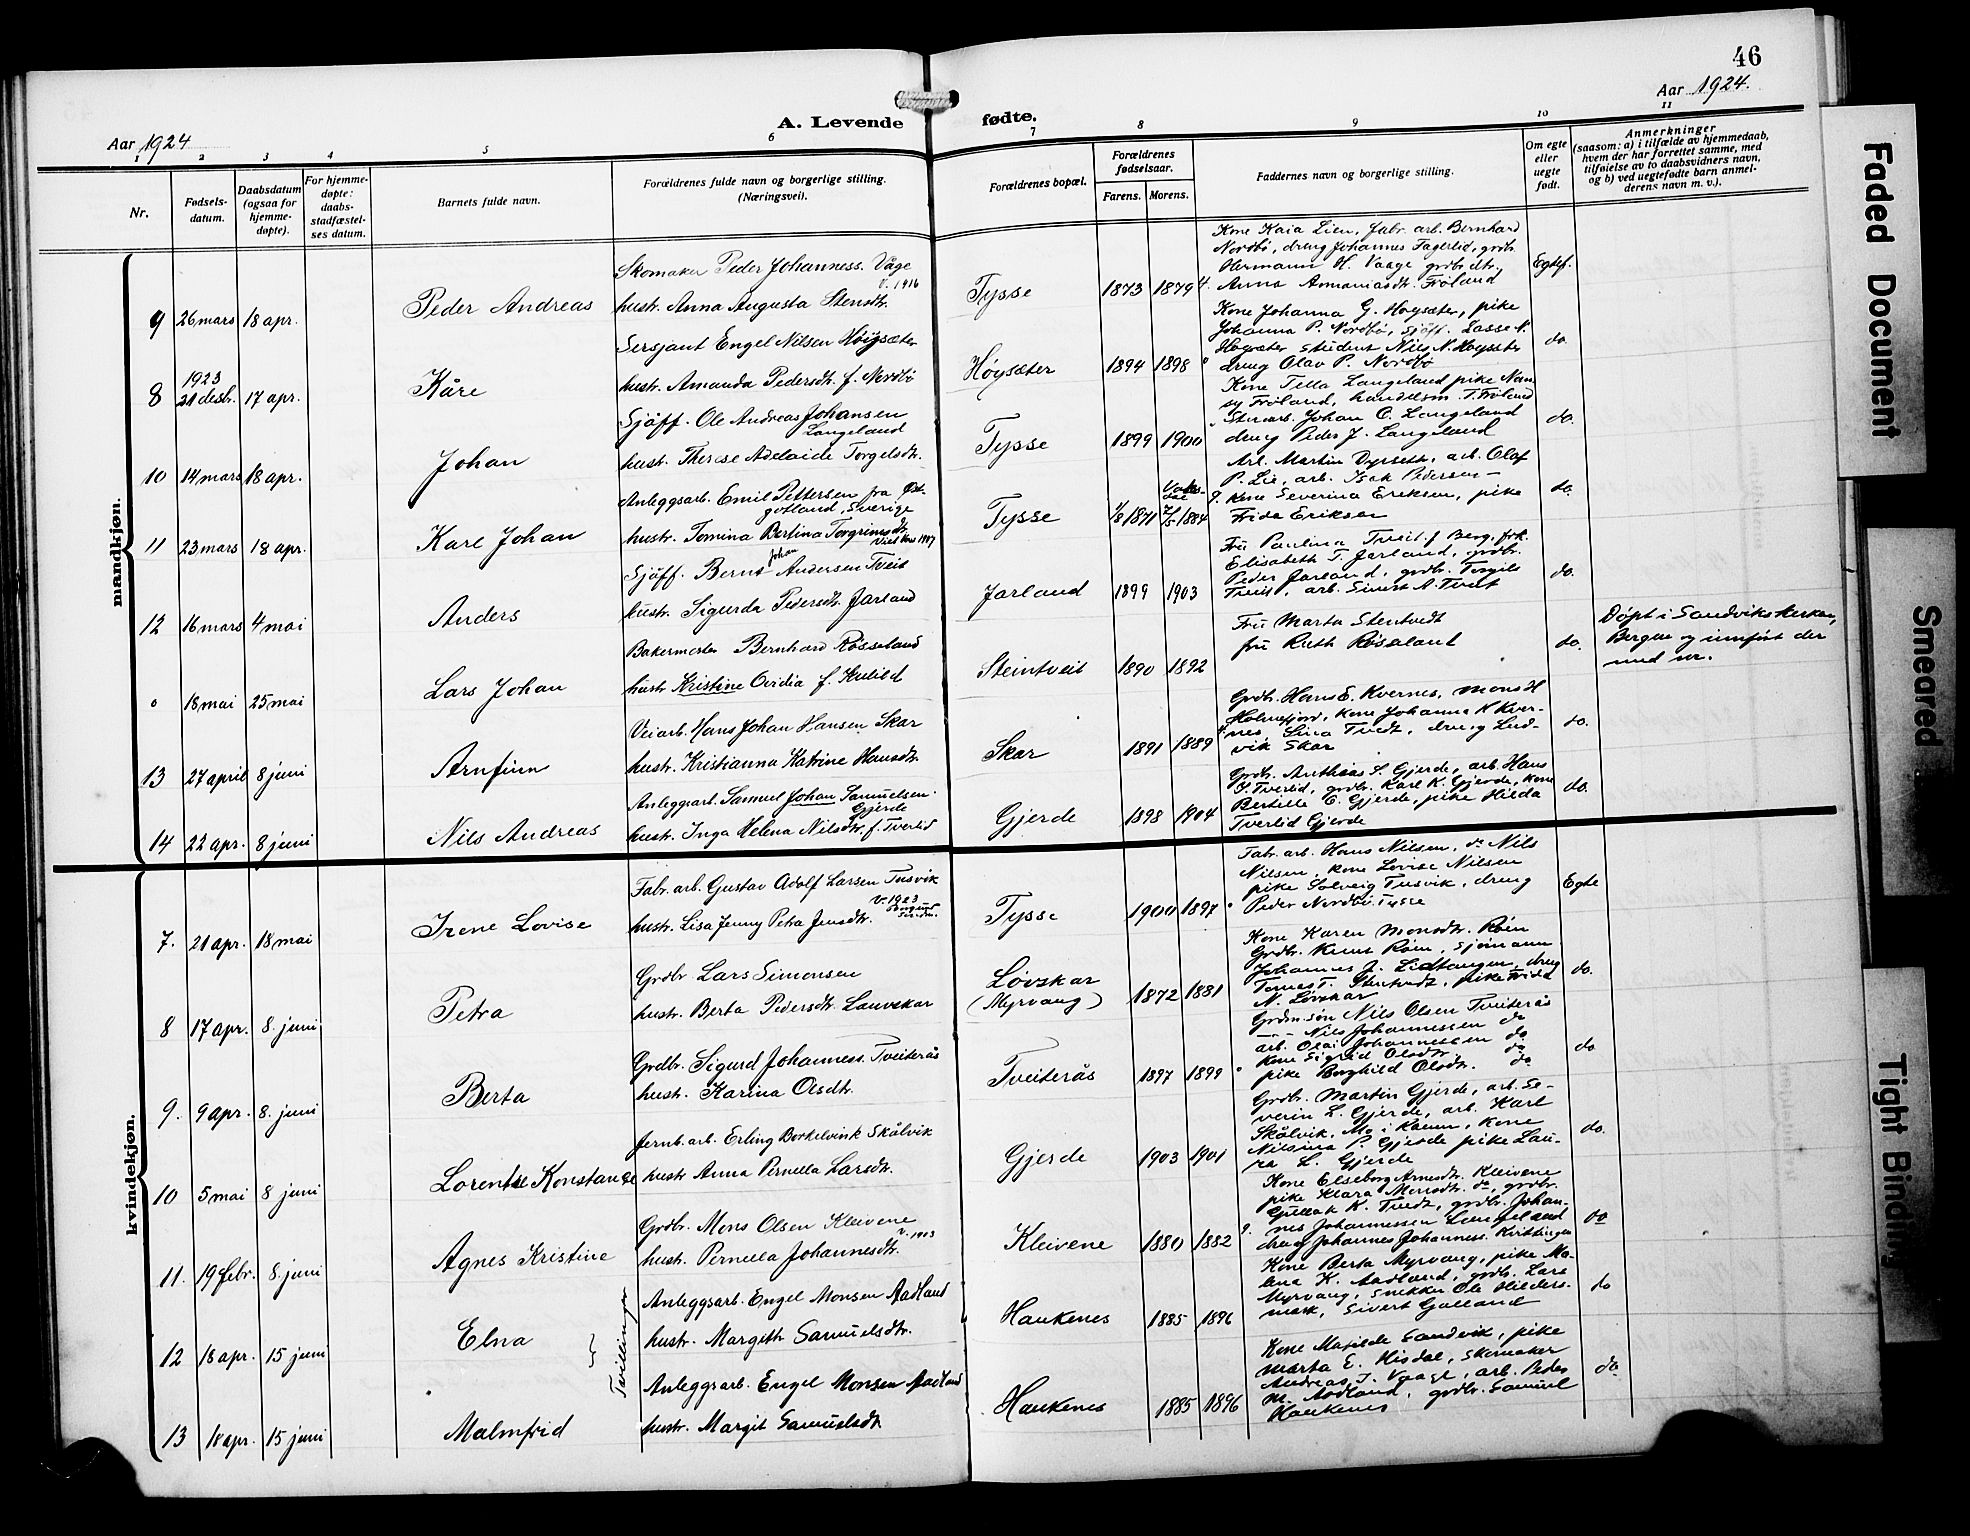 46
Aar 1924
Aar 1924.
A. Levende fødte.
1 2 3 4 5 6 7 8 9 10 11
Nr.
Fødsels-
datum.
Daabsdatum
(ogsaa for
hjemme-
døpte).
For hjemme-
døpte:
daabs-
stadfæstel-
ses datum.
Barnets fulde navn.
Forældrenes fulde navn og borgerlige stilling.
(Næringsvei).
Forældrenes bopæl.
Forældrenes
fødselsaar.
Farens. Morens.
Faddernes navn og borgerlige stilling.
Om egte
eller
uegte
født.
Anmerkninger
(saasom: a) i tilfælde av hjemmedaab,
hvem der har forrettet samme, med
tilføielse av to daabsvidners navn,
og b) ved uegtefødte barn anmel-
derens navn m. v.).
mandkjøn.
9 26 mars 18 apr. Peder Andreas
Skomaker Peder Johanness. Våge
V. 1916
hustr. Anna Augusta Stensdtr.
Tysse 1873 1879
Kone Kaia Lien, fabr. arb. Bernhard
Nordbø, dreng Johannes Fagerlid, grdbr.
Hermann H. Vaage grdbr.dtr.
Anna Asmaniasdt. Frøland
Egtef.
8 1923 21 desbr. 17 apr. Kåre
Sersjant Engel Nilsen Høysæter
hustr. Amanda Pedersdtr. f. Nordbø
Høysæter 1894 1898
Kone Johanna G. Høysæter, pike
Johanna P. Nordbø, sjöff. Lasse N.
Høysæter student Nils N. Høysæter
dreng Olav P. Nordbø
do.
10 14 mars 18 apr. Johan
Sjöff. Ole Andreas Johansen
Langeland
hustr. Therese Adelaide Torgelsdtr.
Tysse 1899 1900
Kone Tella Langeland pike Nan-
sy Frøland, handelsm. T. Frøland
Stenarb. Johan O. Langeland
dreng Peder J. Langeland
do.
11 23 mars 18 apr. Karl Johan
Anleggsarb. Emil Pettersen fra Øst-
gotland, Sverige
hustr. Tomina Bertina Torgrimsdtr.
Tysse 1/8 1871 1884
Arb. Martin Dyrseth, arb. Olaf
P. Lie, arb. Isak Pedersen
Kone Severina Eriksen, pike
Frida Eriksen
do.
12 16 mars 4 mai Anders
Sjöff. Bernt Johan Andersen Tveit
hustr. Sigurda Pedersdtr. Jarland
Jarland 1899 1903
Fru Paulina Tveit f. Berg, frk.
Elisabeth T. Jarland, grdbr.
Peder Jarland, grdbr. Torgils
Tveit, arb. Sivert A. Tveit
do.
0 18 mai 25 mai Lars Johan
Bakermester Bernhard Røsseland
hustr. Kristine Ovidia f.
Steintveit 1890 1892
Fru Marta Stentvedt
fru Ruth Røsseland
do.
Døpt i Sandvikskirken,
Bergen og innført der
med nr.
13 27 april 8 juni Arnfinn
Veiarb. Hans Johan Hansen Skar
hustr. Kristianna Katrine Hansdtr.
Skar 1891 1889
Grdbr. Hans E. Kvernes, Mons H
Holmefjord, kone Johanna K Kver-
nes, Lina Tvedt, dreng Lud-
vik Skar
do.
14 22 apr. 8 juni Nils Andreas
Anleggsarb. Samuel Johan Samuelsen
Gjerde
hustr. Inga Helena Nilsdtr. f. Tverlid
Gjerde 1898 1904
Grdbr. Anthias S. Gjerde, arb. Hans
J. Tverlid, grdbr. Karl K. Gjerde, kone
Bertille C. Gjerde, pike Hilda
Tverlid Gjerde
do.
kvindekjøn.
7. 21 apr. 18 mai Irene Lovise
Fabr. arb. Gustav Adolf Larsen Tusvik
V. 1923
hustr. Lisa Jenny Petra Jensdtr.
Tysse 1900 1897
Fabr. arb. Hans Nilsen, do Nils
Nilsen, kone Lovise Nilsen
pike Solveig Tusvik, dreng
Peder Nordbø. Tysse
Egte
8 17 apr. 8. juni Petra
Grdbr Lars Simonsen
hustr. Berta Pedersdtr. Lauvskar
Løvskar
(Myrvang)
1872 1881
Kone Karen Monsdtr. Røen
Grdbr. Knut Røen, sjømann
Johannes J. Lidtangen, dreng
Tomas T. Stentvedt, pike Frida
N. Løvskar
do.
9. 9 apr. 8. juni Berta
Grdbr. Sigurd Johanness. Tveiterås
hustr. Karina Olsdtr.
Tveiterås 1897 1899
Grdm. søn Nils Olsen Tveiterås
Nils Johannessen do
arb. Olai Johannessen do
kone Sigrid Olsdtr. do
pike Borghild Olsdtr. do
do
10 5 mai 8 juni Lorentse Konstanse
Jernb. arb. Erling Borkelvink Skålvik
hustr. Anna Pernella Larsdtr.
Gjerde 1903 1901
Grdbr. Martin Gjerde, arb. Se-
verin L. Gjerde, arb. Karl
Skålvik, Mo i Rana, kone
Nilsina P. Gjerde pike Lau-
ra L. Gjerde
do.
11. 19 febr. 8. juni Agnes Kristine
Grdbr. Mons Olsen Kleivene
V. 1903
hustr. Pernella Johannesdtr.
Kleivene 1880 1882
Kone Elseborg Arnesdtr. Kleivene
pike Klara Monsdtr. do, grdbr.
Gullak K. Tvedt, grdbr. Johan-
nes Johannessen Langeland
dreng Johannes Johanness.
do
12 18 apr. 15 juni Elna
Tvillinger
Anleggsarb. Engel Monsen Aadland
hustr. Margith Samuelsdtr.
Haukenes 1885 1896
Kone Berta Myrvang, pike Ma-
lena K. Aadland, grdbr. Lars
Myrvang, snekker Ole Hilders-
mark, Sivert Gjelland
do
13 18 apr. 15 juni Malmfrid
Anleggsarb. Engel Monsen Aadland
hustr. Margit Samuelsdt
Haukenes 1885 1896
Kone Matilde Sandvik, pike
Marta E. Hisdal, skomaker
Andreas J. Vaage, arb. Peder
M. Aadland, grdbr. Samuel
Haukenes
do
Faded Document
Smeared
Tight Binding